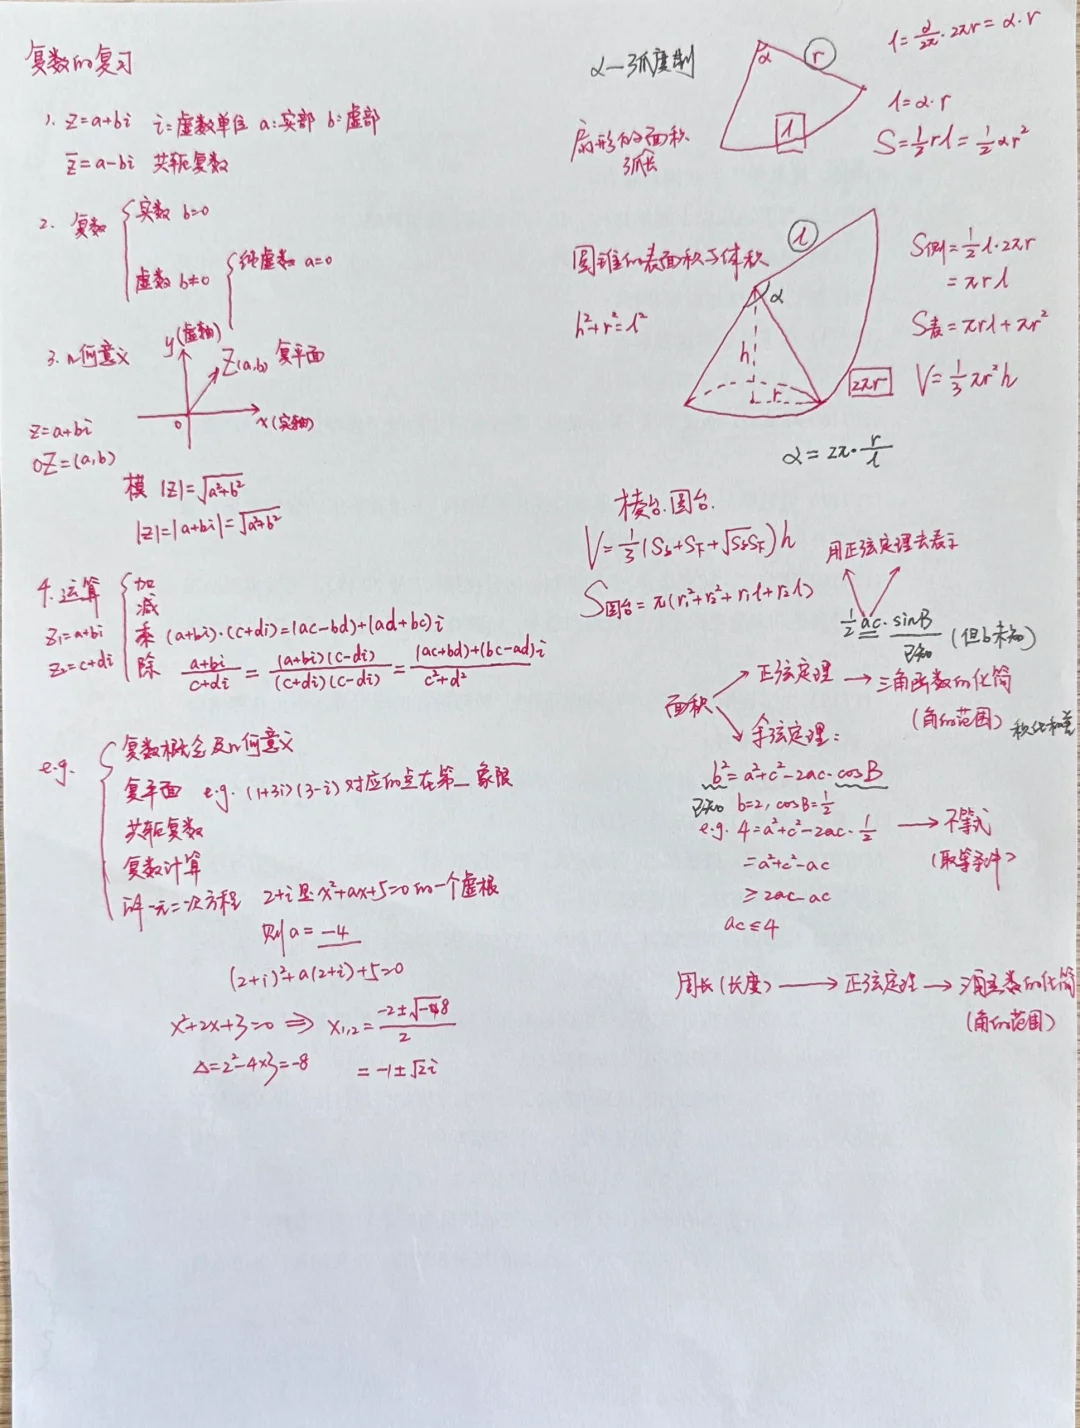 复数的复习
1. z=a+bi i=虚数单位 a:实部 b:虚部
z̅=a-bi 共轭复数
2. 复数
实数 b=0
虚数 b≠0
纯虚数 a=0
3. 几何意义
y(虚轴)
Z(a,b) 复平面
0
x(实轴)
z=a+bi
OZ=(a,b)
模 |z|=√(a²+b²)
|z|=|a+bi|=√(a²+b²)
4. 运算
z₁=a+bi
z₂=c+di
加
减
乘 (a+bi)·(c+di)=(ac-bd)+(ad+bc)i
除 (a+bi)/(c+di) = (a+bi)(c-di)/(c+di)(c-di) = (ac+bd)+(bc-ad)i/(c²+d²)
e.g.
复数概念及几何意义
复平面 e.g. (1+3i)(3-i)对应的点在第一象限
共轭复数
复数计算
解一元二次方程 2+i是x²+ax+5=0的一个虚根
则a=-4
(2+i)²+a(2+i)+5=0
x²+2x+3=0 ⇒ x₁,₂=(-2±√-8)/2
Δ=2²-4×3=-8 =-1±√2i
α—弧度制
α
r
l
l=α/2π·2πr=α·r
l=α·r
S=½rl=½αr²
扇形的面积
弧长
圆锥的表面积与体积
h²+r²=l²
l
α
h
r
2πr
S侧=½l·2πr
=πrl
S表=πrl+πr²
V=⅓πr²h
α=2π·r/l
棱台.圆台.
V=⅓(S上+S下+√S上S下)h
S圆台=π(r₁²+r₂²+r₁l+r₂l)
用正弦定理去表示
½ac·sinB
已知
(但b未知)
面积
正弦定理→三角函数的化简
(角的范围) 积化和差
余弦定理:
b²=a²+c²-2ac·cosB
已知 b=2,cosB=½
e.g. 4=a²+c²-2ac·½ → 不等式
(取等条件)
=a²+c²-ac
≥2ac-ac
ac≤4
周长(长度) → 正弦定理 → 三角函数的化简
(角的范围)